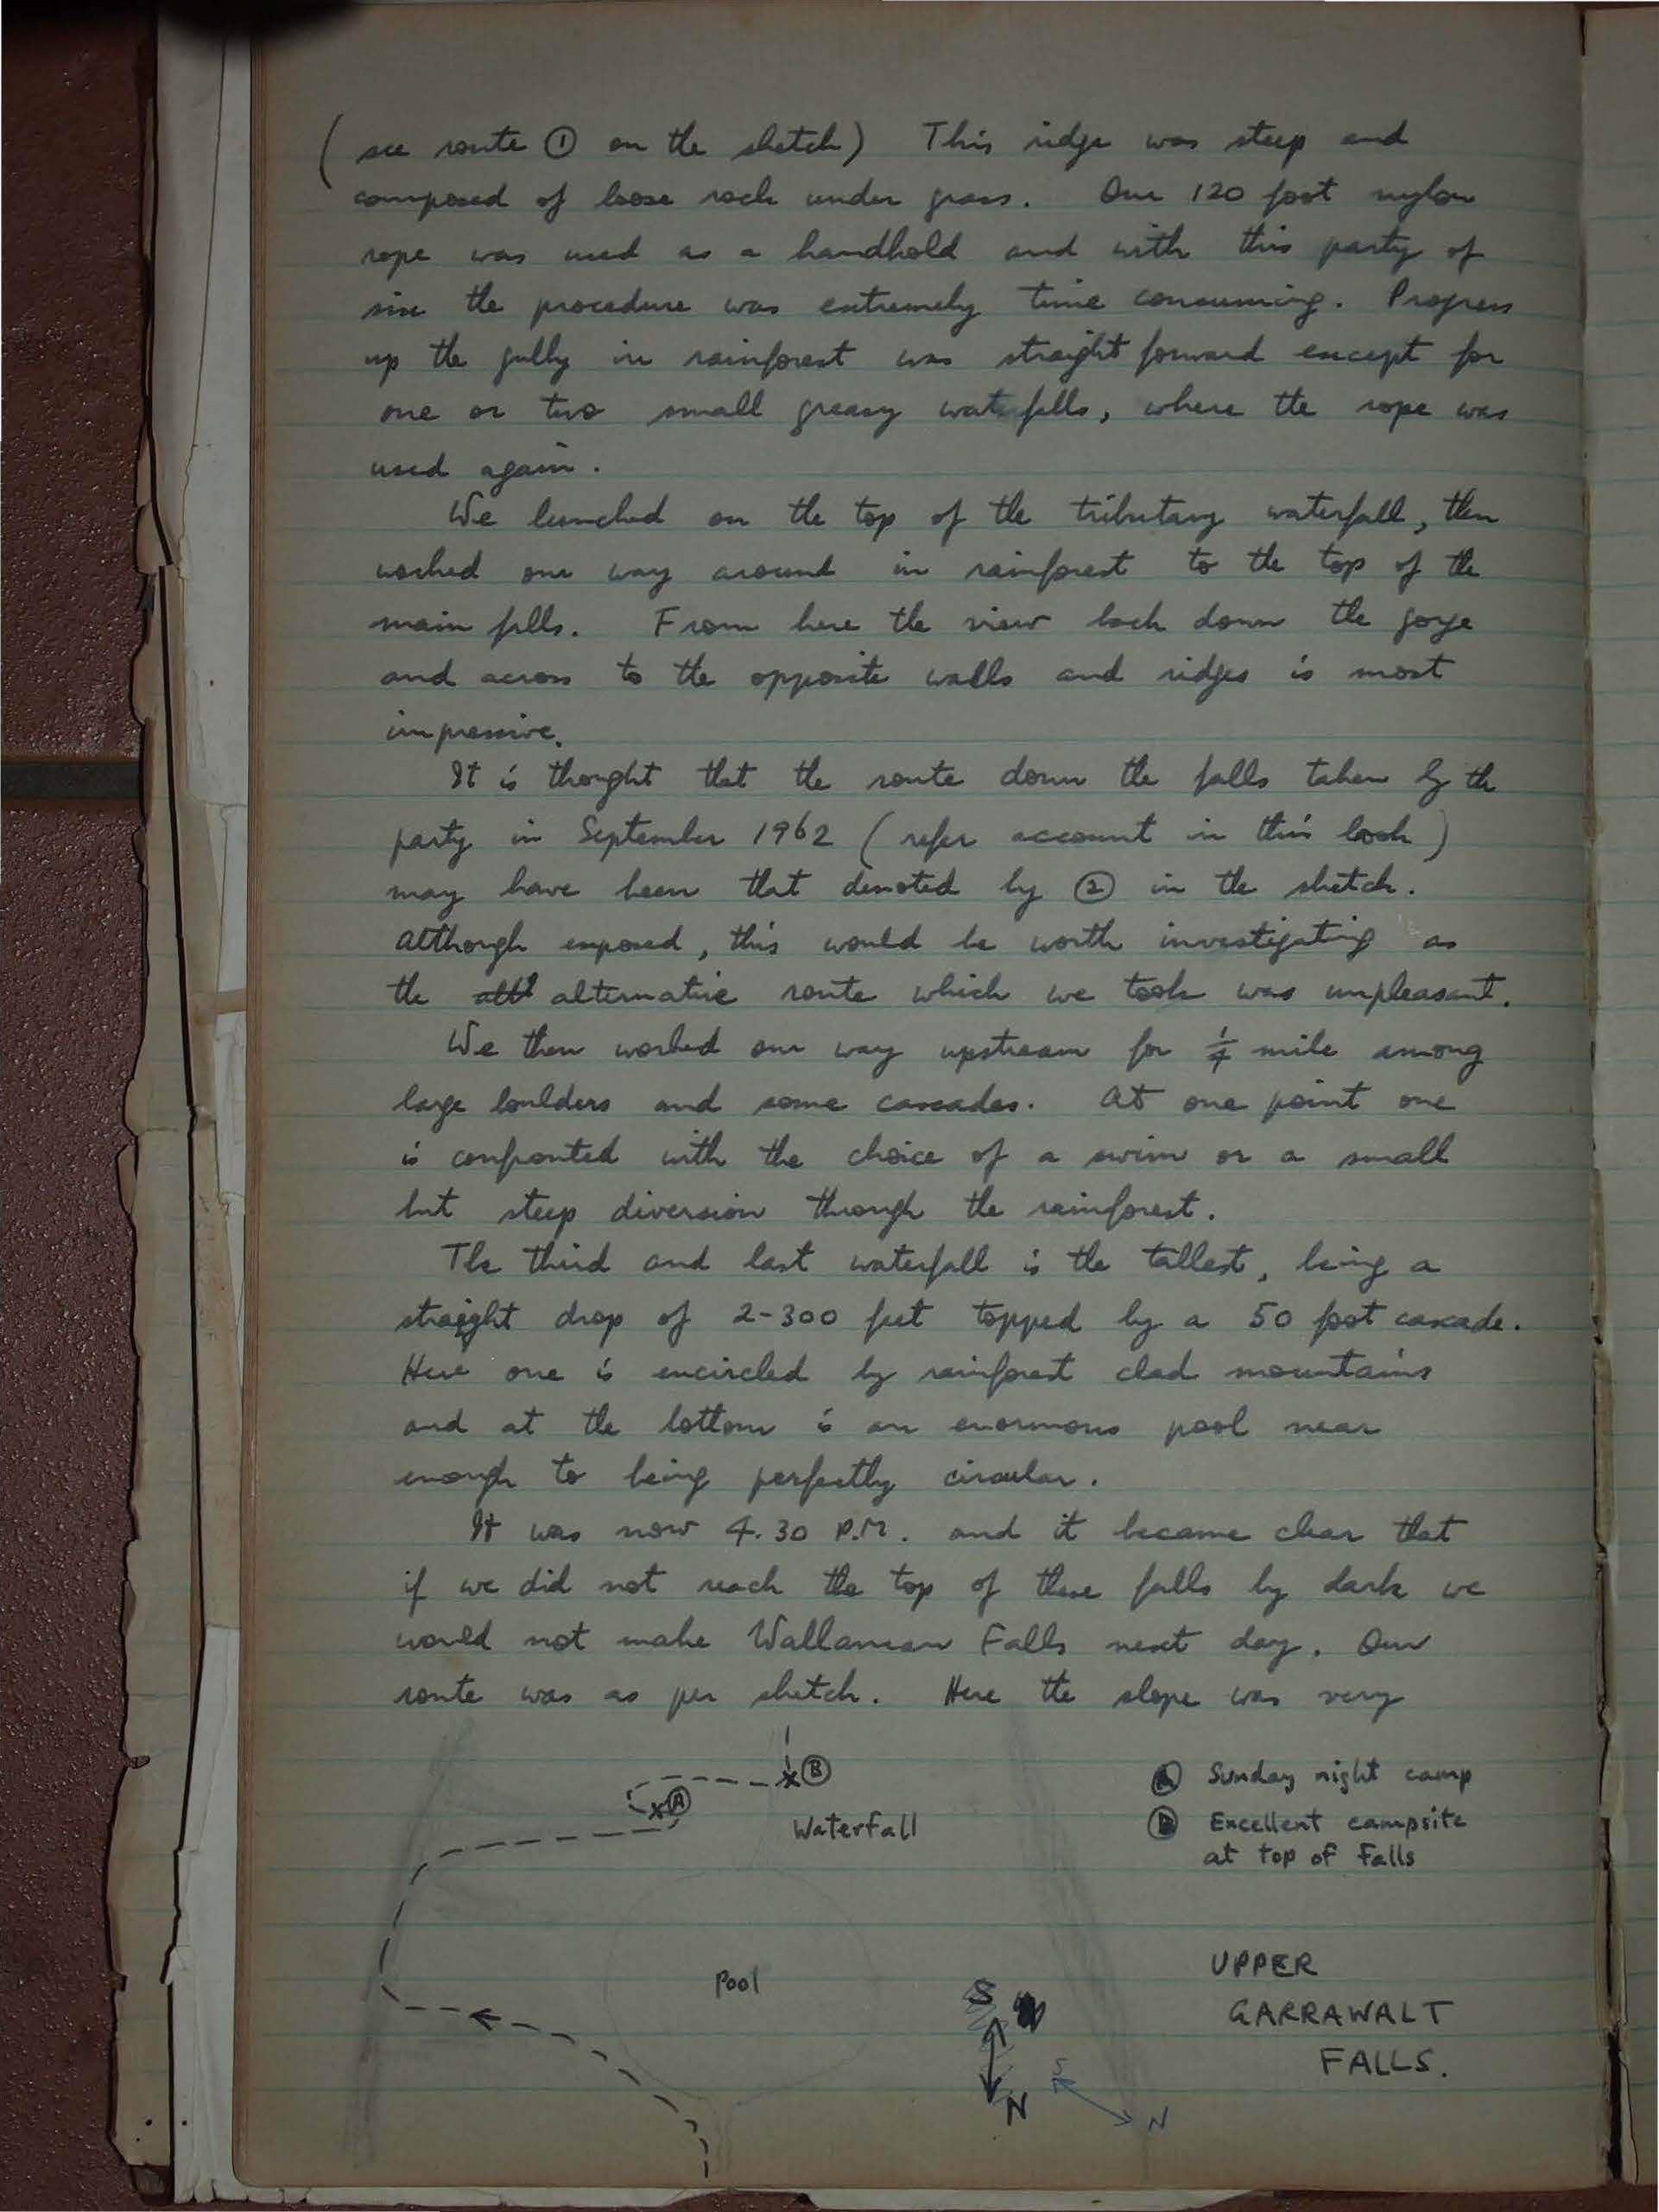 (see route ① on the sketch) This ridge was steep and
composed of loose rock under grass. One 120 foot nylon
rope was used as a handhold and with this party of
six the procedure was extremely time consuming. Progress
up the gully in rainforest was straight forward except for
one or two small greasy waterfalls, where the rope was
used again.
We lunched on the top of the tributary waterfall, then
worked our way around in rainforest to the top of the
main falls. From here the view back down the gorge
and across to the opposite walls and ridges is most
impressive.
It is thought that the route down the falls taken by the
party in September 1962 (refer account in this book)
may have been that denoted by ② in the sketch.
Although exposed, this would be worth investigating as
the alternative route which we took was unpleasant.
We then worked our way upstream for ¼ mile among
large boulders and some cascades. At one point one
is confronted with the choice of a swim or a small
but steep diversion through the rainforest.
The third and last waterfall is the tallest, being a
straight drop of 2-300 feet topped by a 50 foot cascade.
Here one is encircled by rainforest clad mountains
and at the bottom is an enormous pool near
enough to being perfectly circular.
It was now 4.30 P.M. and it became clear that
if we did not reach the top of these falls by dark we
would not make Wallaman Falls next day. Our
route was as per sketch. Here the slope was very
Ⓑ
Ⓐ
Waterfall
Ⓐ Sunday night camp
Ⓑ Excellent campsite
at top of Falls
Pool
S
N
S
N
UPPER
GARRAWALT
FALLS.